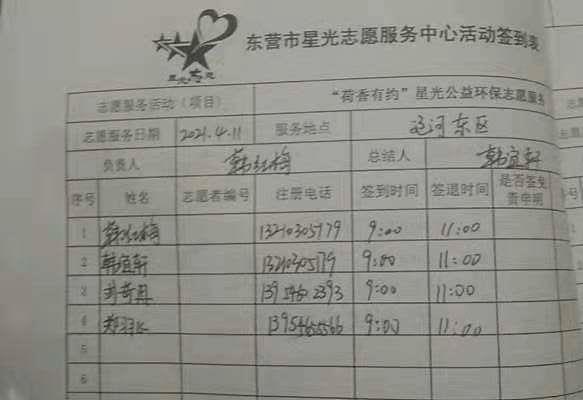 星光志愿
东营市星光志愿服务中心活动签到表
志愿服务活动（项目） “荷香有约”星光公益环保志愿服务
志愿服务日期 2021.4.11 服务地点 运河东区
负责人 韩红梅 总结人 韩宜轩
序号 姓名 志愿者编号 注册电话 签到时间 签退时间 是否签免责申明
1 韩红梅 13210305179 9:00 11:00
2 韩宜轩 13210305179 9:00 11:00
3 9:00 11:00
4 9:00 11:00
5
6